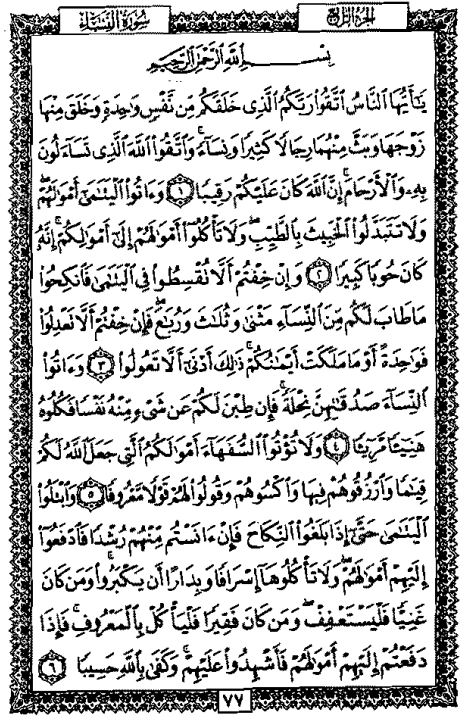 سُورَةُ النِّسَاءِ
الجُزءُ الرَّابِع
بِسْمِ اللَّهِ الرَّحْمَٰنِ الرَّحِيمِ
يَٰٓأَيُّهَا النَّاسُ اتَّقُوا۟ رَبَّكُمُ الَّذِى خَلَقَكُم مِّن نَّفْسٍ وَٰحِدَةٍ وَخَلَقَ مِنْهَا
زَوْجَهَا وَبَثَّ مِنْهُمَا رِجَالًا كَثِيرًا وَنِسَآءً ۚ وَاتَّقُوا۟ اللَّهَ الَّذِى تَسَآءَلُونَ
بِهِۦ وَالْأَرْحَامَ ۚ إِنَّ اللَّهَ كَانَ عَلَيْكُمْ رَقِيبًا ١ وَءَاتُوا۟ الْيَتَٰمَىٰٓ أَمْوَٰلَهُمْ ۖ
وَلَا تَتَبَدَّلُوا۟ الْخَبِيثَ بِالطَّيِّبِ ۖ وَلَا تَأْكُلُوٓا۟ أَمْوَٰلَهُمْ إِلَىٰٓ أَمْوَٰلِكُمْ ۚ إِنَّهُۥ
كَانَ حُوبًا كَبِيرًا ٢ وَإِنْ خِفْتُمْ أَلَّا تُقْسِطُوا۟ فِى الْيَتَٰمَىٰ فَانكِحُوا۟
مَا طَابَ لَكُم مِّنَ النِّسَآءِ مَثْنَىٰ وَثُلَٰثَ وَرُبَٰعَ ۖ فَإِنْ خِفْتُمْ أَلَّا تَعْدِلُوا۟
فَوَٰحِدَةً أَوْ مَا مَلَكَتْ أَيْمَٰنُكُمْ ۚ ذَٰلِكَ أَدْنَىٰٓ أَلَّا تَعُولُوا۟ ٣ وَءَاتُوا۟
النِّسَآءَ صَدُقَٰتِهِنَّ نِحْلَةً ۚ فَإِن طِبْنَ لَكُمْ عَن شَىْءٍ مِّنْهُ نَفْسًا فَكُلُوهُ
هَنِيٓـًٔا مَّرِيٓـًٔا ٤ وَلَا تُؤْتُوا۟ السُّفَهَآءَ أَمْوَٰلَكُمُ الَّتِى جَعَلَ اللَّهُ لَكُمْ
قِيَٰمًا وَارْزُقُوهُمْ فِيهَا وَاكْسُوهُمْ وَقُولُوا۟ لَهُمْ قَوْلًا مَّعْرُوفًا ٥ وَابْتَلُوا۟
الْيَتَٰمَىٰ حَتَّىٰٓ إِذَا بَلَغُوا۟ النِّكَاحَ فَإِنْ ءَانَسْتُم مِّنْهُمْ رُشْدًا فَادْفَعُوٓا۟
إِلَيْهِمْ أَمْوَٰلَهُمْ ۖ وَلَا تَأْكُلُوهَآ إِسْرَافًا وَبِدَارًا أَن يَكْبَرُوا۟ ۚ وَمَن كَانَ
غَنِيًّا فَلْيَسْتَعْفِفْ ۖ وَمَن كَانَ فَقِيرًا فَلْيَأْكُلْ بِالْمَعْرُوفِ ۚ فَإِذَا
دَفَعْتُمْ إِلَيْهِمْ أَمْوَٰلَهُمْ فَأَشْهِدُوا۟ عَلَيْهِمْ ۚ وَكَفَىٰ بِاللَّهِ حَسِيبًا ٦
٧٧